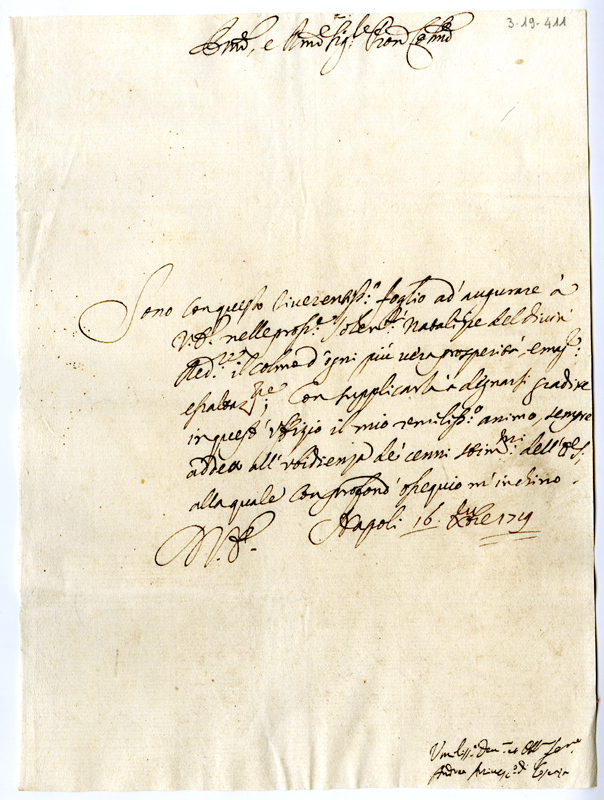 3-19-411
e Sig.r Pron
Sono con questo riverentiss.o foglio ad' augurare à
V.E. nelle pross.e solen.tà Natalizie del divin
Red.re il colmo d' ogni più vera prosperità, e mag.r
esaltaz.ne; Con supplicarla à degnarsi gradire
in quest' Vfizio il mio vmiliss.o animo, sempre
all' vbidienza de' cenni stim.mi dell' E.S.,
alla quale con profond' ossequio m' inchino.
D. V.E. Napoli 16. Xbre 1719
Vmiliss.o Ser.e
Andrea Arcivesc.o di